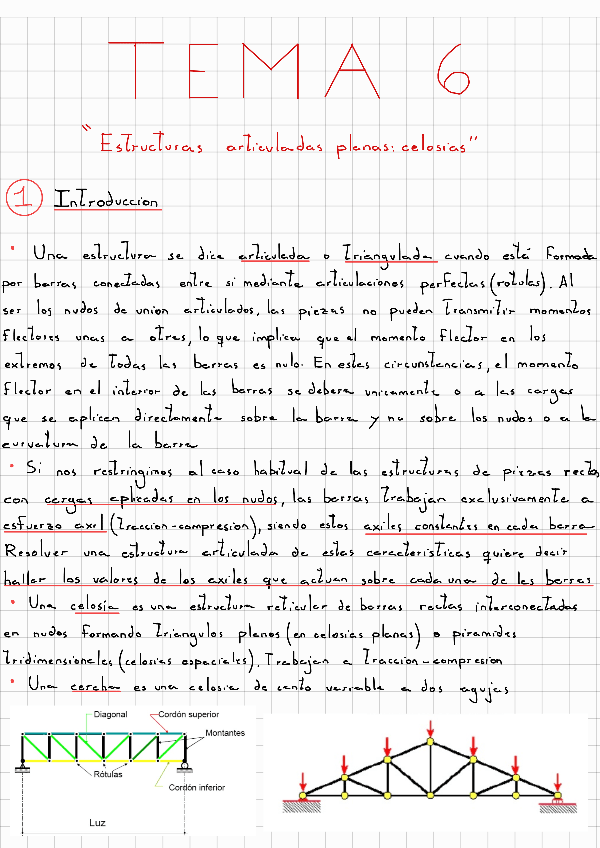 TEMA 6
"Estructuras articuladas planas: celosias"
1 Introduccion
• Una estructura se dice articulada o triangulada cuando está formada
por barras conectadas entre si mediante articulaciones perfectas (rotulas). Al
ser los nudos de union articulados, las piezas no pueden transmitir momentos
flectores unas a otras, lo que implica que el momento flector en los
extremos de todas las barras es nulo. En estas circunstancias, el momento
flector en el interior de las barras se debera unicamente o a las cargas
que se aplican directamente sobre la barra y no sobre los nudos o a la
curvatura de la barra
• Si nos restringimos al caso habitual de las estructuras de piezas rectas
con cargas aplicadas en los nudos, las barras trabajan exclusivamente a
esfuerzo axil (traccion-compresion), siendo estos axiles constantes en cada barra
Resolver una estructura articulada de estas caracteristicas quiere decir
hallar los valores de los axiles que actuan sobre cada una de las barras
• Una celosia es una estructura reticular de barras rectas interconectadas
en nudos formando triangulos planos (en celosias planas) o piramides
tridimensionales (celosias espaciales). Trabajan a traccion-compresion
• Una cercha es una celosia de canto variable a dos agujas
Diagonal Cordón superior
Montantes
Rótulas
Cordón inferior
Luz